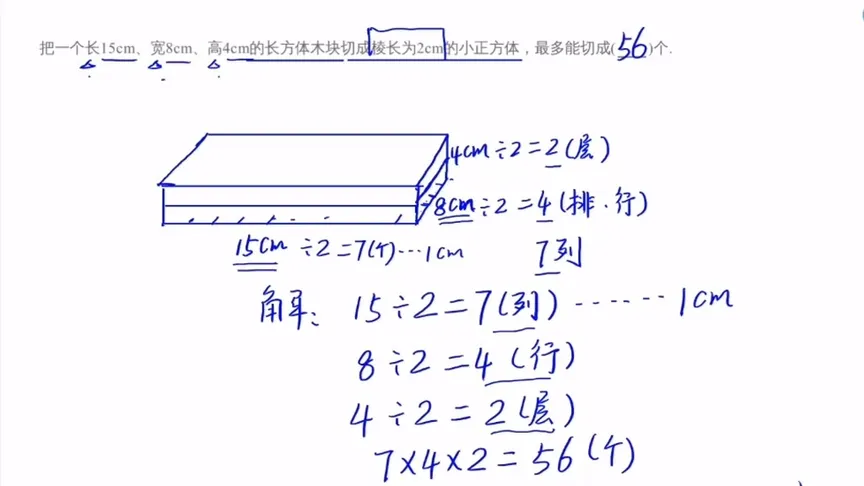 把一个长15cm、宽8cm、高4cm的长方体木块切成棱长为2cm的小正方体，最多能切成(56)个.
4cm÷2=2(层)
8cm÷2=4(排.行)
15cm÷2=7(个)…1cm
7列
解: 15÷2=7(列)……1cm
8÷2=4(行)
4÷2=2(层)
7×4×2=56(个)